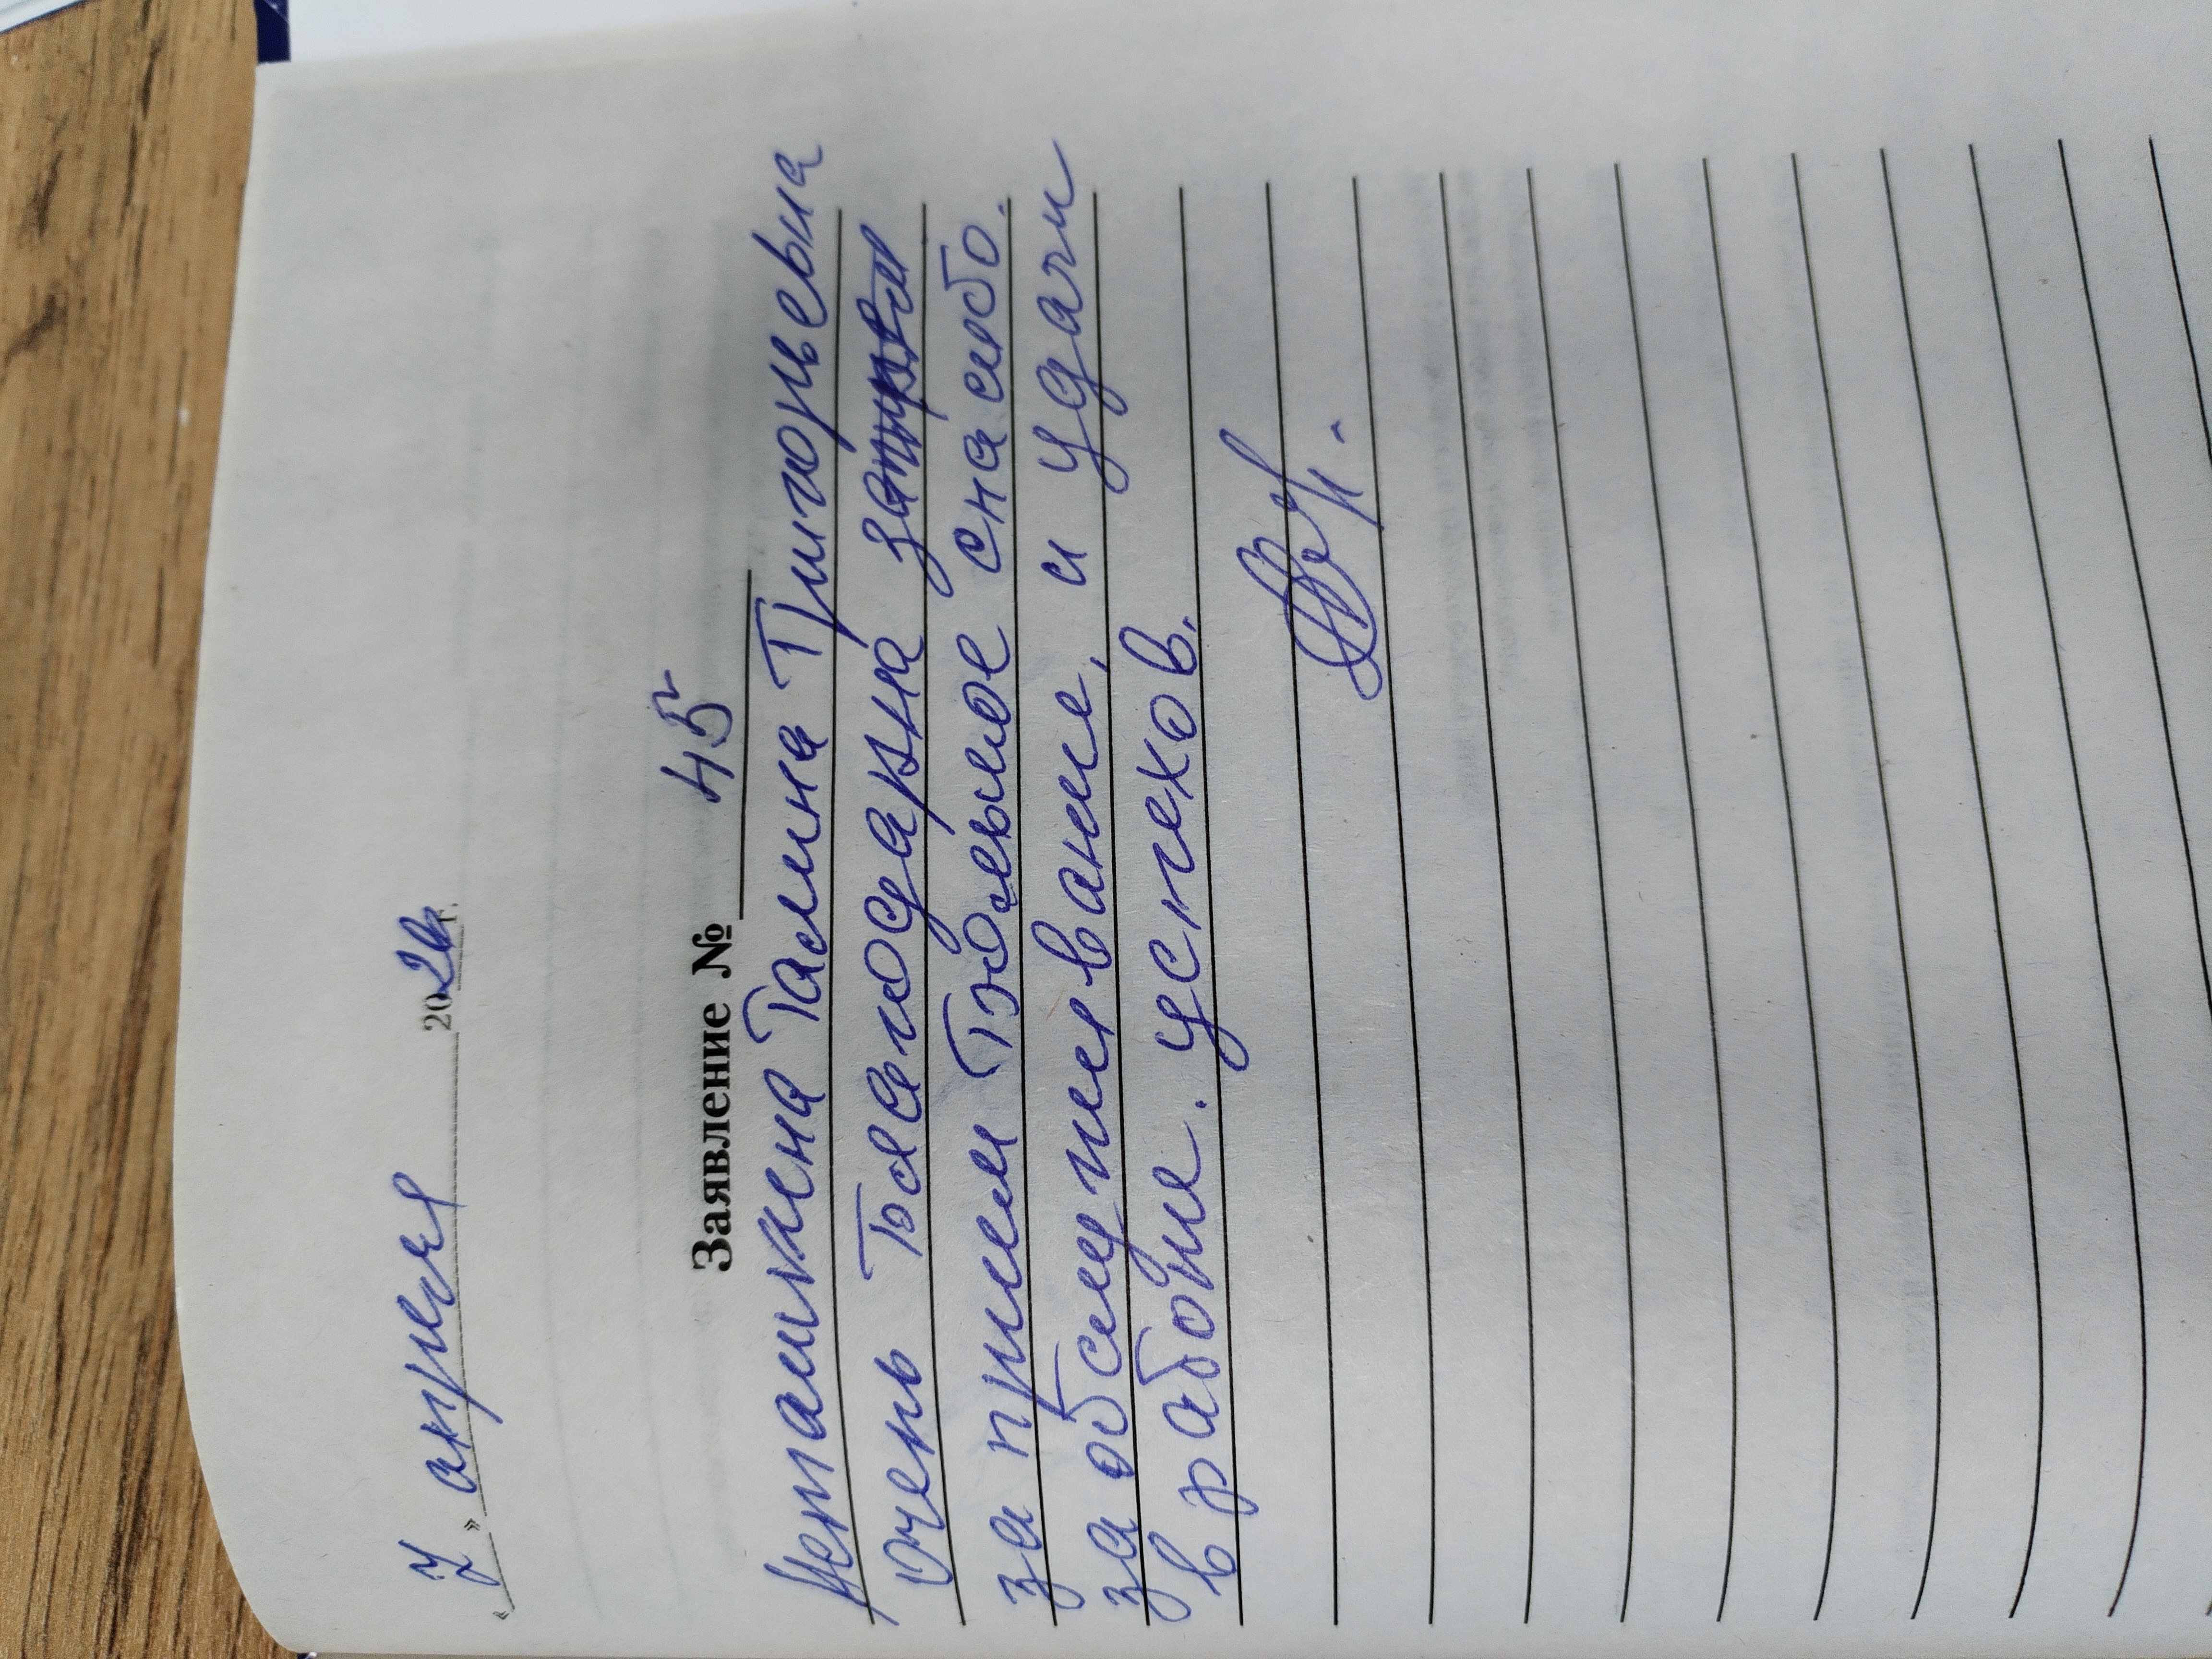 « 7 » апреля 2026 г.
Заявление № 45
Галина Григорьевна
очень благодарна за
за прием Большое спасибо.
за обслуживание, и удачи
в работе. успехов.